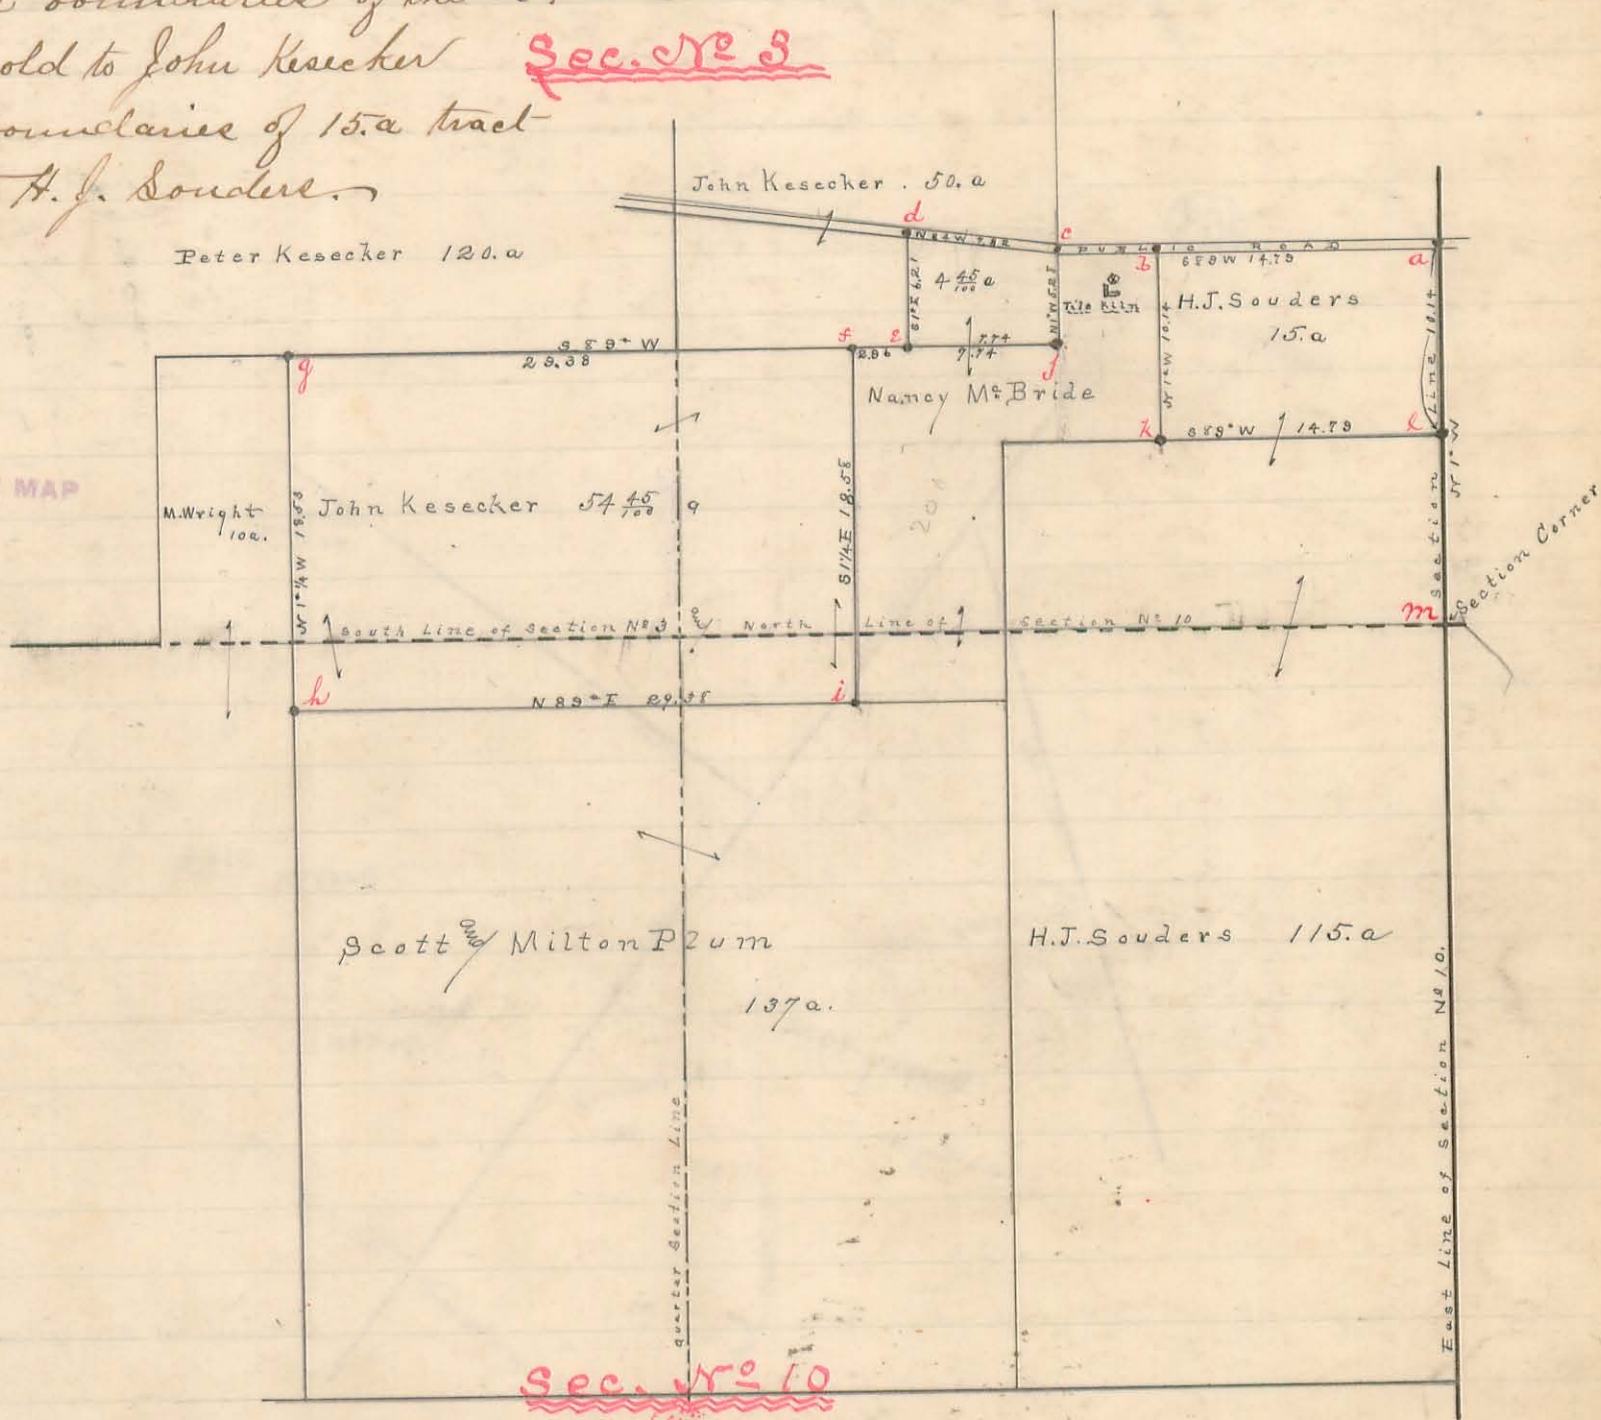 boundaries of the
old to John Kesecker
Sec. No 3
oundaries of 15.a tract
H. J. Souders.
John Kesecker . 50. a
Peter Kesecker 120. a
d
N 84 W 7.82
c
PUBLIC ROAD
b
S 89 W 14.79
a
S 1° E 6.21
4 45/100 a
N 1° W 5.27
Tile Kiln
H.J. Souders
15. a
N 1° W 10.14
Line 10.14
g
S 89° W
29.38
f
2.96
e
7.74
7.74
j
Nancy McBride
k
S 89° W 14.79
l
N 1° W
MAP
M. Wright
10a.
N 1° 1/4 W 18.58
John Kesecker 54 45/100 a
S 1 1/4 E 18.58
20 a
Section
Section Corner
South Line of Section No 3 and North Line of Section No 10
m
h
N 89° E 29.38
i
Scott and Milton Plum
137 a.
H.J. Souders 115. a
quarter Section Line
East Line of Section No 10.
Sec. No 10